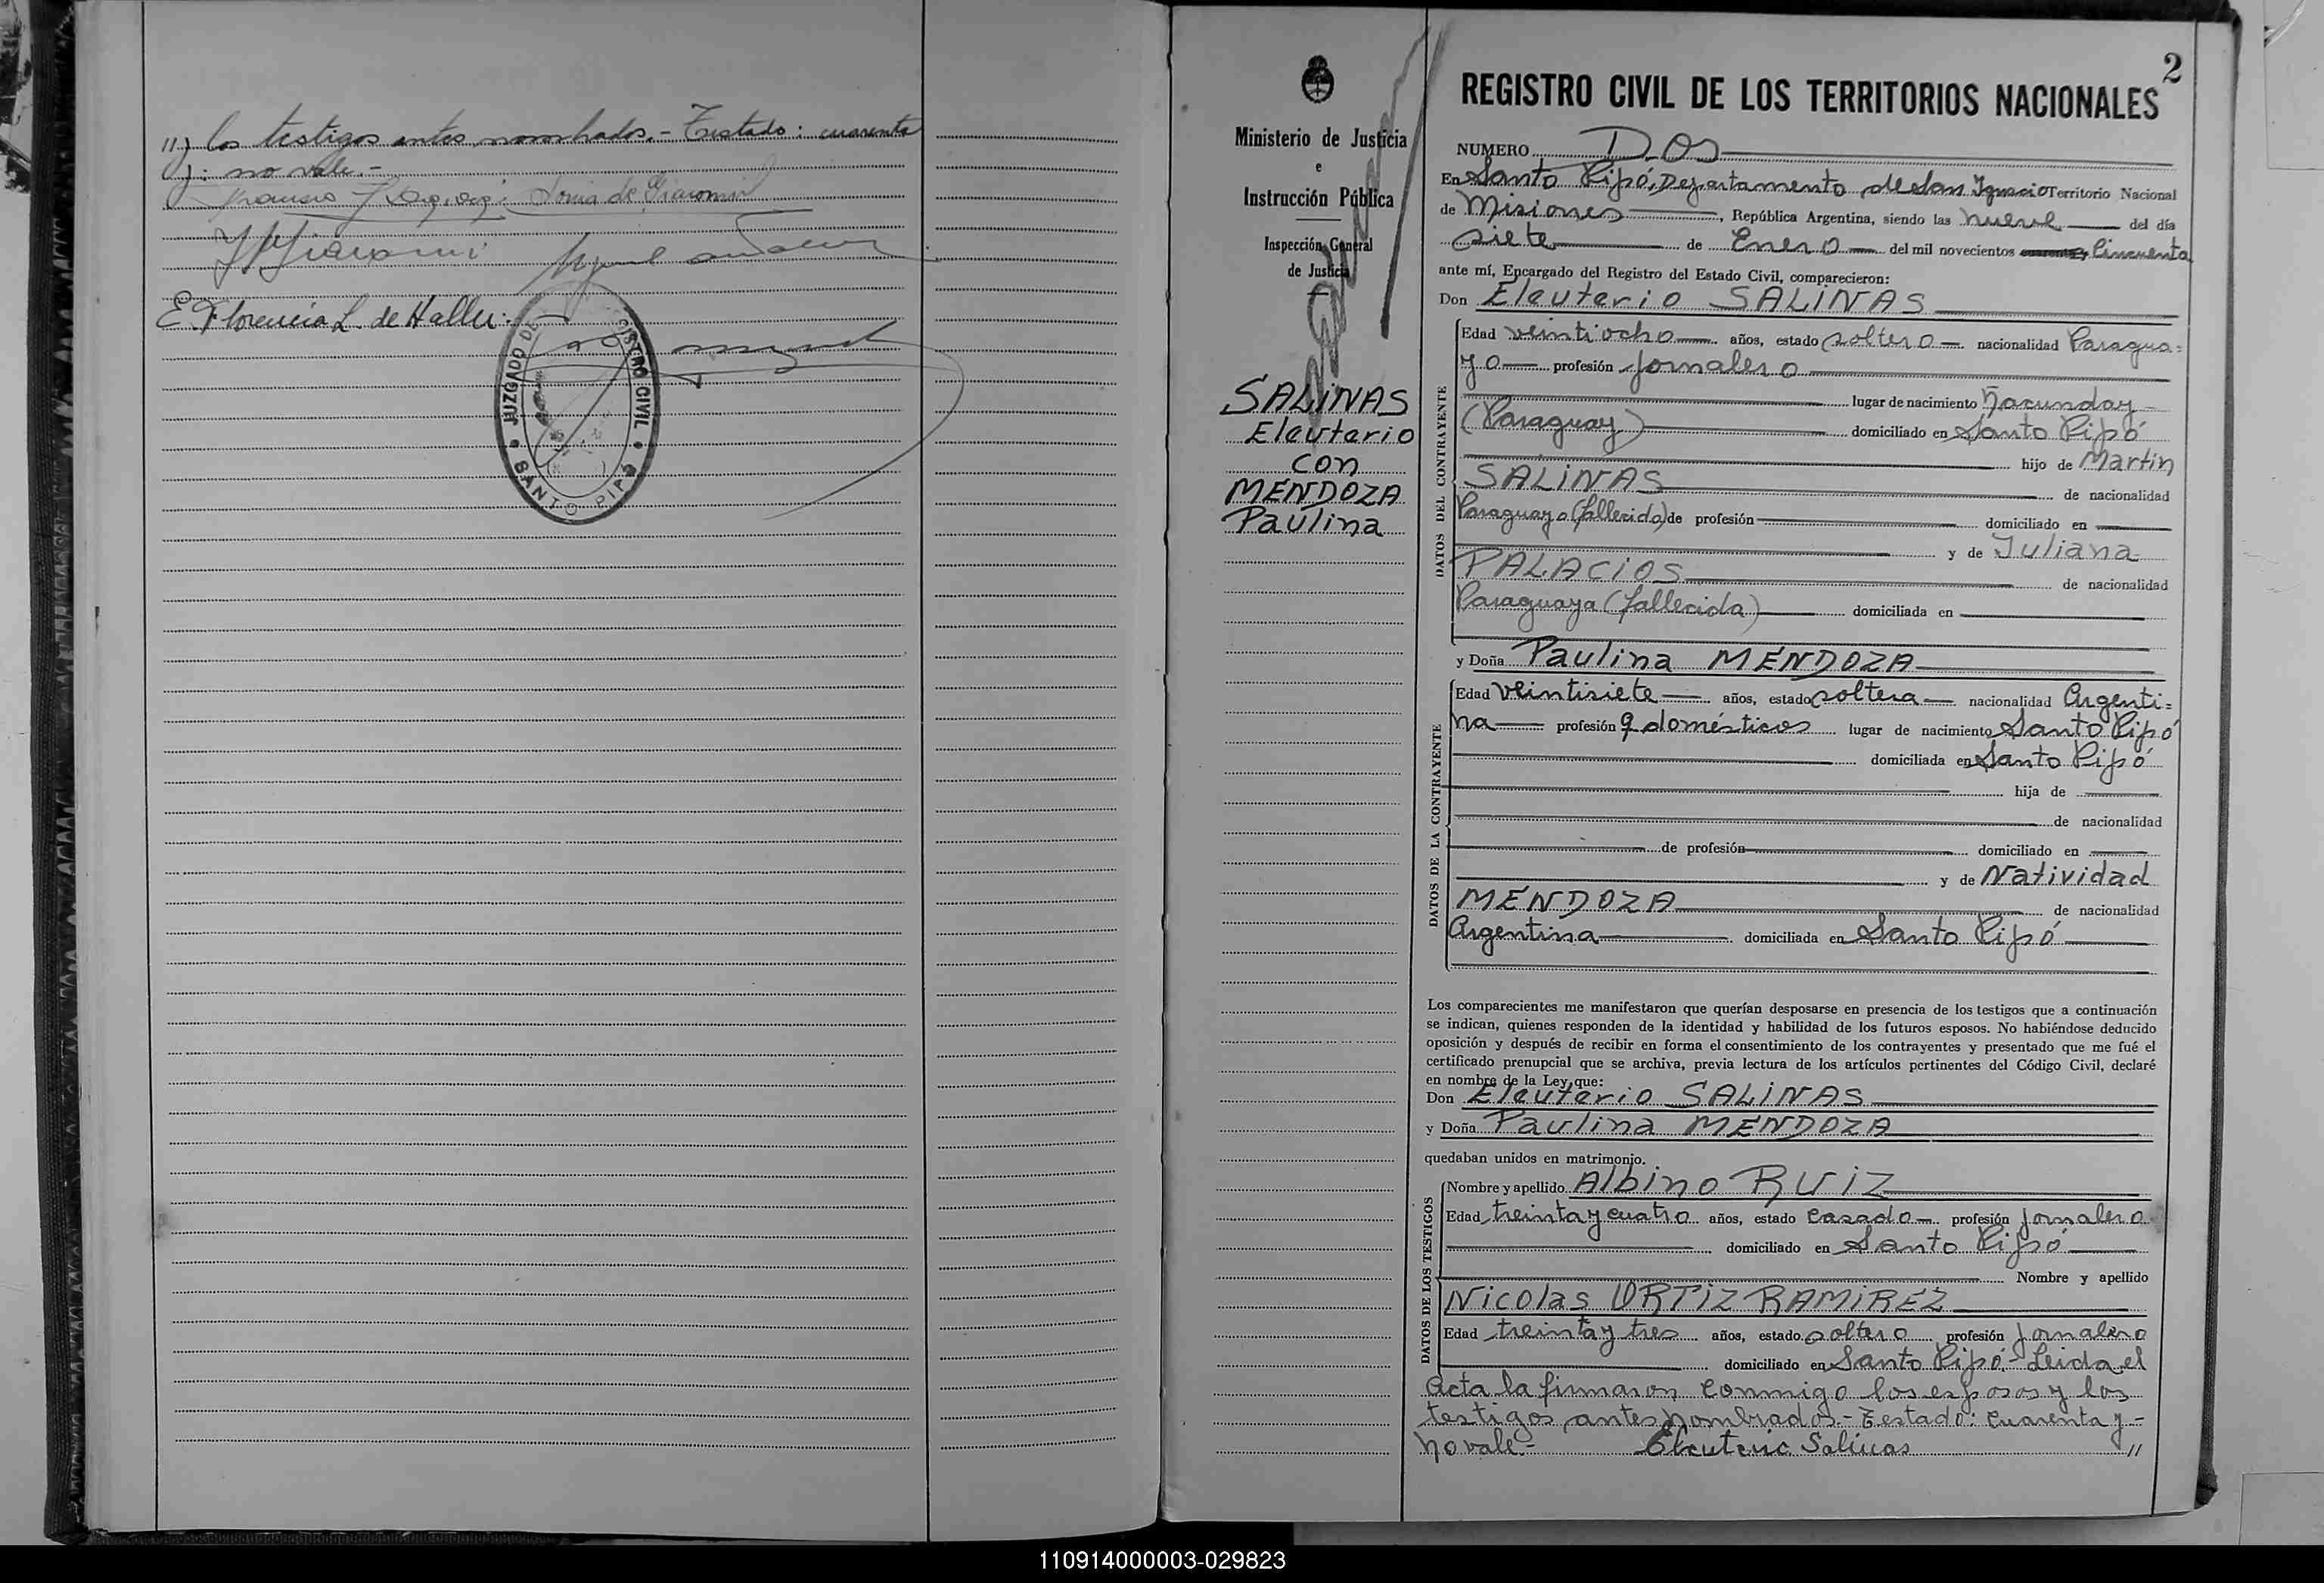 11) los testigos antes nombrados.- Testado: cuarenta
y: no vale.-
Sonia de Giacomi
Giacomi
E. Florencia L. de Haller.
JUZGADO DE REGISTRO CIVIL
SANTO PIPÓ
2
Ministerio de Justicia
e
Instrucción Pública
Inspección General
de Justicia
SALINAS
Eleuterio
con
MENDOZA
Paulina
REGISTRO CIVIL DE LOS TERRITORIOS NACIONALES
NUMERO DOS
En Santo Pipó, Departamento de San Ignacio Territorio Nacional
de Misiones, República Argentina, siendo las nueve del día
siete de Enero del mil novecientos cuarenta y Cincuenta
ante mí, Encargado del Registro del Estado Civil, comparecieron:
Don Eleuterio SALINAS
DATOS DEL CONTRAYENTE
Edad veintiocho años, estado soltero nacionalidad Paragua=
yo profesión jornalero
lugar de nacimiento Ñacunday
(Paraguay) domiciliado en Santo Pipó
hijo de Martin
SALINAS de nacionalidad
Paraguaya (fallecido) de profesión domiciliado en
y de Juliana
PALACIOS de nacionalidad
Paraguaya (fallecida) domiciliada en
y Doña Paulina MENDOZA
DATOS DE LA CONTRAYENTE
Edad veintisiete años, estado soltera nacionalidad Argenti=
na profesión q. domésticos lugar de nacimiento Santo Pipó
domiciliada en Santo Pipó
hija de
de nacionalidad
de profesión domiciliado en
y de Natividad
MENDOZA de nacionalidad
Argentina domiciliada en Santo Pipó
Los comparecientes me manifestaron que querían desposarse en presencia de los testigos que a continuación
se indican, quienes responden de la identidad y habilidad de los futuros esposos. No habiéndose deducido
oposición y después de recibir en forma el consentimiento de los contrayentes y presentado que me fué el
certificado prenupcial que se archiva, previa lectura de los artículos pertinentes del Código Civil, declaré
en nombre de la Ley, que:
Don Eleuterio SALINAS
y Doña Paulina MENDOZA
quedaban unidos en matrimonio.
DATOS DE LOS TESTIGOS
Nombre y apellido Albino RUIZ
Edad treinta y cuatro años, estado casado profesión jornalero
domiciliado en Santo Pipó
Nombre y apellido
Nicolas ORTIZ RAMIREZ
Edad treinta y tres años, estado soltero profesión jornalero
domiciliado en Santo Pipó.- Leida el
acta la firmaron conmigo los esposos y los
testigos antes nombrados.- Testado: cuarenta y-
no vale.- Eleuterio Salinas //
110914000003-029823